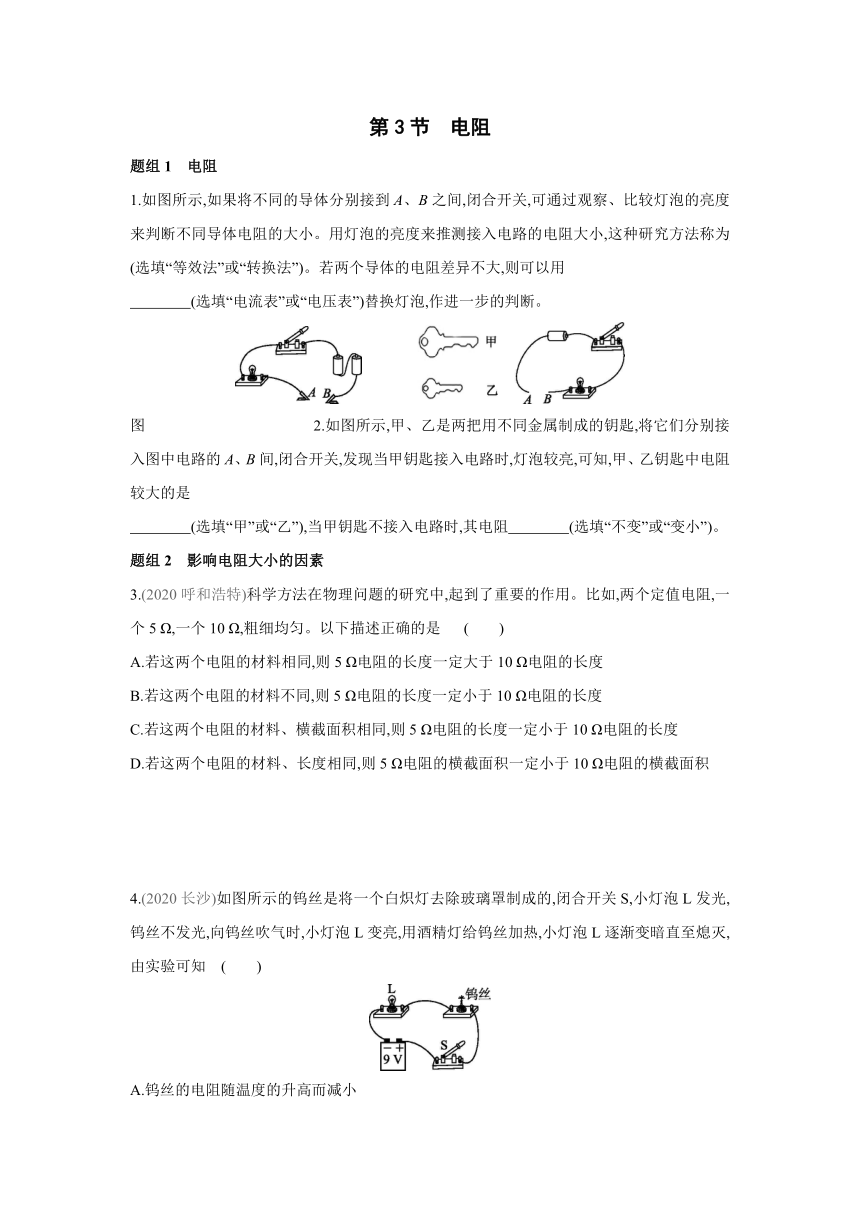 第3节 电阻
题组1 电阻
1.如图所示,如果将不同的导体分别接到A、B之间,闭合开关,可通过观察、比较灯泡的亮度
来判断不同导体电阻的大小。用灯泡的亮度来推测接入电路的电阻大小,这种研究方法称为
(选填“等效法”或“转换法”)。若两个导体的电阻差异不大,则可以用
________(选填“电流表”或“电压表”)替换灯泡,作进一步的判断。
A B
甲
乙
A B
图 2.如图所示,甲、乙是两把用不同金属制成的钥匙,将它们分别接
入图中电路的A、B间,闭合开关,发现当甲钥匙接入电路时,灯泡较亮,可知,甲、乙钥匙中电阻
较大的是
________(选填“甲”或“乙”),当甲钥匙不接入电路时,其电阻________(选填“不变”或“变小”)。
题组2 影响电阻大小的因素
3.(2020呼和浩特)科学方法在物理问题的研究中,起到了重要的作用。比如,两个定值电阻,一
个5 Ω,一个10 Ω,粗细均匀。以下描述正确的是 ( )
A.若这两个电阻的材料相同,则5 Ω电阻的长度一定大于10 Ω电阻的长度
B.若这两个电阻的材料不同,则5 Ω电阻的长度一定小于10 Ω电阻的长度
C.若这两个电阻的材料、横截面积相同,则5 Ω电阻的长度一定小于10 Ω电阻的长度
D.若这两个电阻的材料、长度相同,则5 Ω电阻的横截面积一定小于10 Ω电阻的横截面积
4.(2020长沙)如图所示的钨丝是将一个白炽灯去除玻璃罩制成的,闭合开关S,小灯泡L发光,
钨丝不发光,向钨丝吹气时,小灯泡L变亮,用酒精灯给钨丝加热,小灯泡L逐渐变暗直至熄灭,
由实验可知 ( )
L
钨丝
S
− +
9 V
A.钨丝的电阻随温度的升高而减小